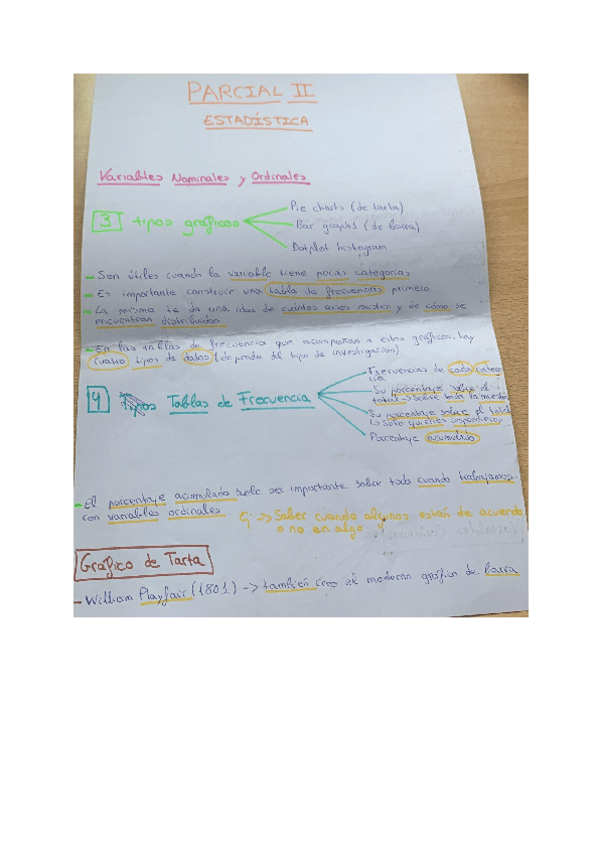 PARCIAL II
ESTADÍSTICA
Variables Nominales y Ordinales
3 tipos gráficos
Pie charts (de tarta)
Bar graphs (de barra)
Dotplot histogram
- Son útiles cuando la variable tiene pocas categorías
- Es importante construir una tabla de frecuencias primero
- La misma te da una idea de cuántos casos existen y de cómo se
encuentran distribuidos
- En las tablas de frecuencia que acompañan a estos gráficos, hay
cuatro tipos de datos (depende del tipo de investigación)
4 Tipos Tablas de Frecuencia
Frecuencias de cada catego
ría
Su porcentaje sobre el
total → sobre toda la muestra
Su porcentaje sobre el total
↳ solo quienes respondieron
Porcentaje acumulado
- El porcentaje acumulado suele ser importante saber todo cuando trabajamos
con variables ordinales
Ej → Saber cuando algunos están de acuerdo
o no en algo
Gráfico de Tarta
- William Playfair (1801) → también creo el moderno gráfico de barra